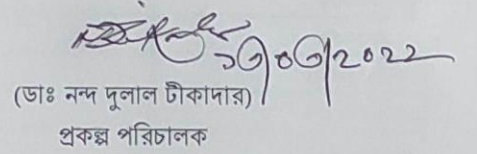 ১৩/০৩/২০২২
(ডাঃ নন্দ দুলাল টীকাদার)
প্রকল্প পরিচালক